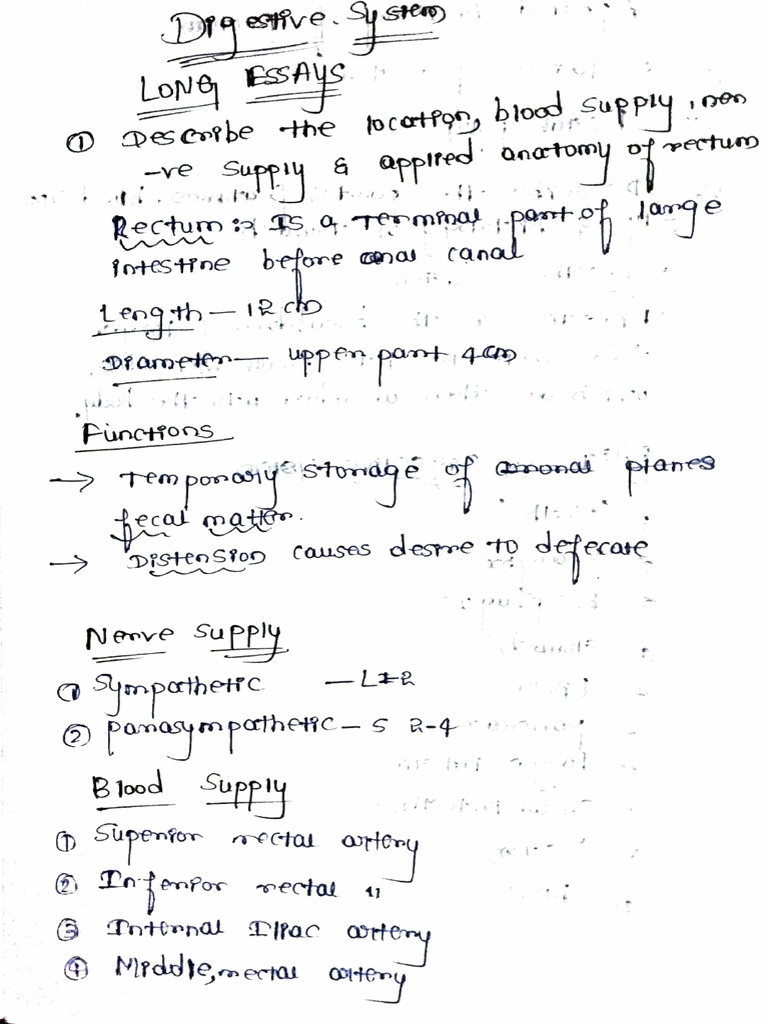 Digestive System
LONG ESSAYS
① Describe the location, blood supply, ner
-ve supply & applied anatomy of rectum
Rectum :- Is a Terminal part of large
intestine before anal canal
Length — 12 cm
Diameter — upper part 4cm
Functions
→ Temporary storage of
fecal matter.
→ Distension causes desire to defecate
Nerve supply
① Sympathetic — L1-2
② parasympathetic — S 2-4
Blood Supply
① Superior rectal artery
② Inferior rectal "
③ Internal Iliac artery
④ Middle, rectal artery